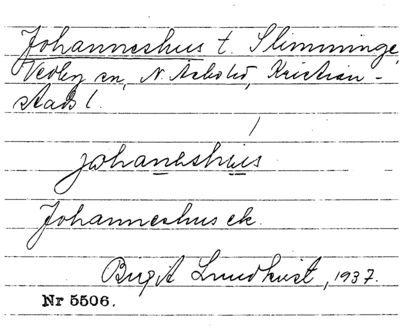 Johanneshus t. Slimminge,
Vedby sn, N. Åsbo hd, Kristian-
stads l.
johaneshus
Johanneshus ek.
Birgit Lundkvist, 1937.
Nr 5506.